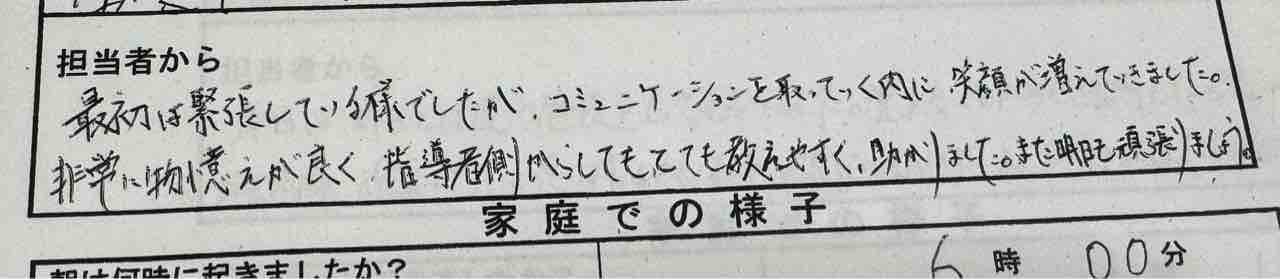 担当者から
最初は緊張している様でしたが、コミュニケーションを取っていく内に、笑顔が増えていきました。
非常に物憶えが良く、指導者側からしてもとても教えやすく、助かりました。また明日も頑張りましょう。
家庭での様子
朝は何時に起きましたか?
6時00分